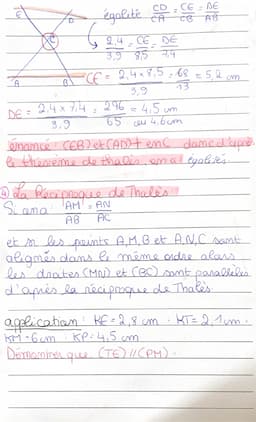 E
D
C
A
B
égalité CD/CA = CE/CB = DE/AB
↳ 2,4/3,9 = CE/8,5 = DE/7,4
CE = 2,4 x 8,5 / 3,9 = 68/13 = 5,2 cm
DE = 2,4 x 7,4 / 3,9 = 296/65 = 4,5 cm
ou 4.6 cm
énoncé : (EB) et (AD) + en C donc d'après
le théorème de thalès, on a égalités
④ La Réciproque de Thalès
Si on a AM/AB = AN/AC
et si les points A,M,B et A,N,C sont
alignés dans le même ordre alors
les droites (MN) et (BC) sont parallèles
d'après la réciproque de Thalès.
application : KE = 2,8 cm . KT = 2,1cm .
KM = 6 cm . KP = 4,5 cm
Démontrer que (TE) // (PM) .